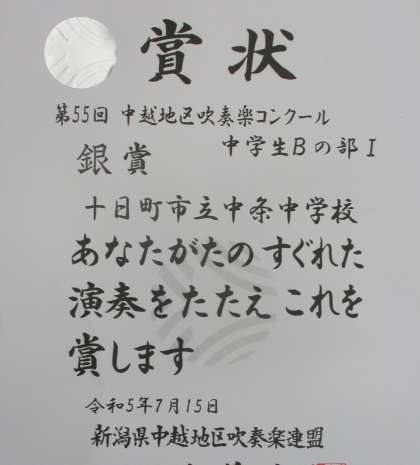 賞状
第55回 中越地区吹奏楽コンクール
中学生Bの部Ⅰ
銀賞
十日町市立中条中学校
あなたがたの すぐれた
演奏をたたえ これを
賞します
令和5年7月15日
新潟県中越地区吹奏楽連盟